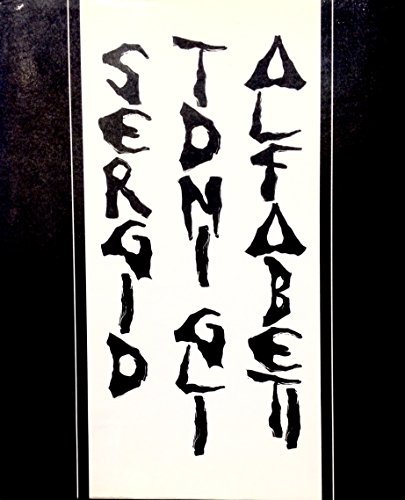 SERGIO
TONI GLI
ALFABETI